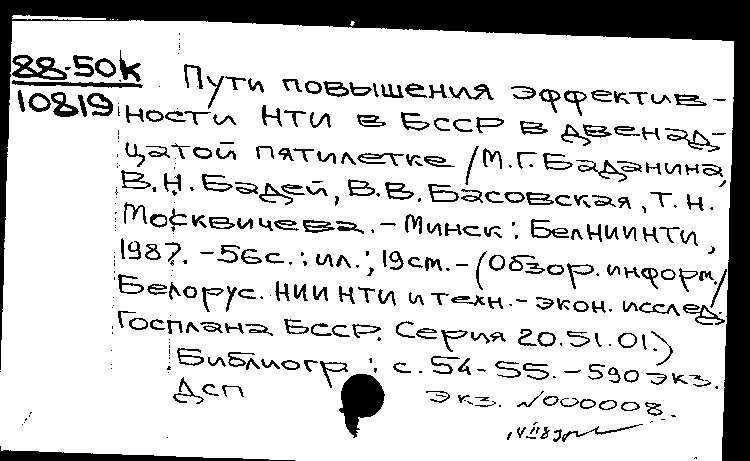 88-50к
10819
Пути повышения эффектив-
ности НТИ в БССР в двенад-
цатой пятилетке / М.Г. Баданина,
В.Н. Бадей, В.В. Басовская, Т.Н.
Москвичева. – Минск : БелНИИНТИ,
1987. – 56 с. : ил. ; 19 см. – (Обзор. информ. /
Белорус. НИИ НТИ и техн.-экон. исслед.
Госплана БССР. Серия 20.51.01.)
Библиогр. : с. 54-55. – 590 экз.
Дсп
Экз. №000008.